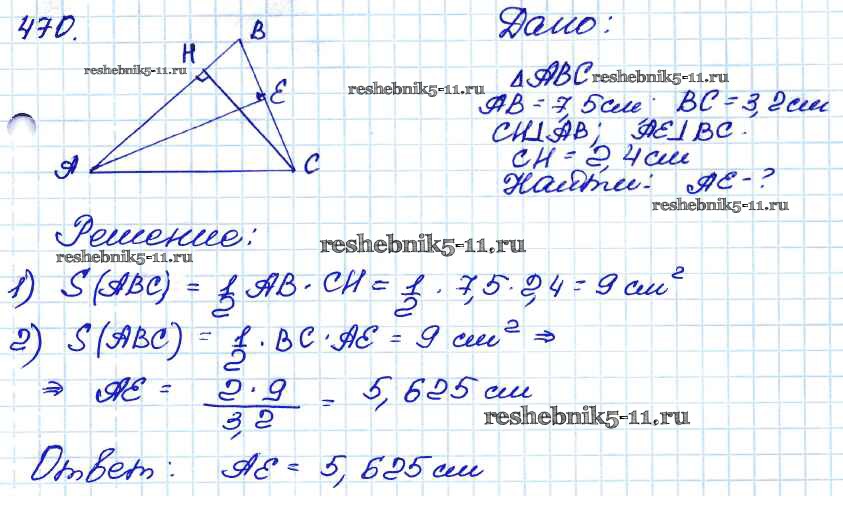 470.
B
H
reshebnik5-11.ru
E
A
C
Дано:
△ABC reshebnik5-11.ru
reshebnik5-11.ru
AB = 7,5 см; BC = 3,2 см
CH⊥AB; AE⊥BC.
CH = 2,4 см
Найти: AE - ?
reshebnik5-11.ru
Решение:
reshebnik5-11.ru
reshebnik5-11.ru
1) S(ABC) = 1/2 AB · CH = 1/2 · 7,5 · 2,4 = 9 см²
2) S(ABC) = 1/2 · BC · AE = 9 см² ⇒
⇒ AE = 2·9/3,2 = 5,625 см
reshebnik5-11.ru
Ответ: AE = 5,625 см